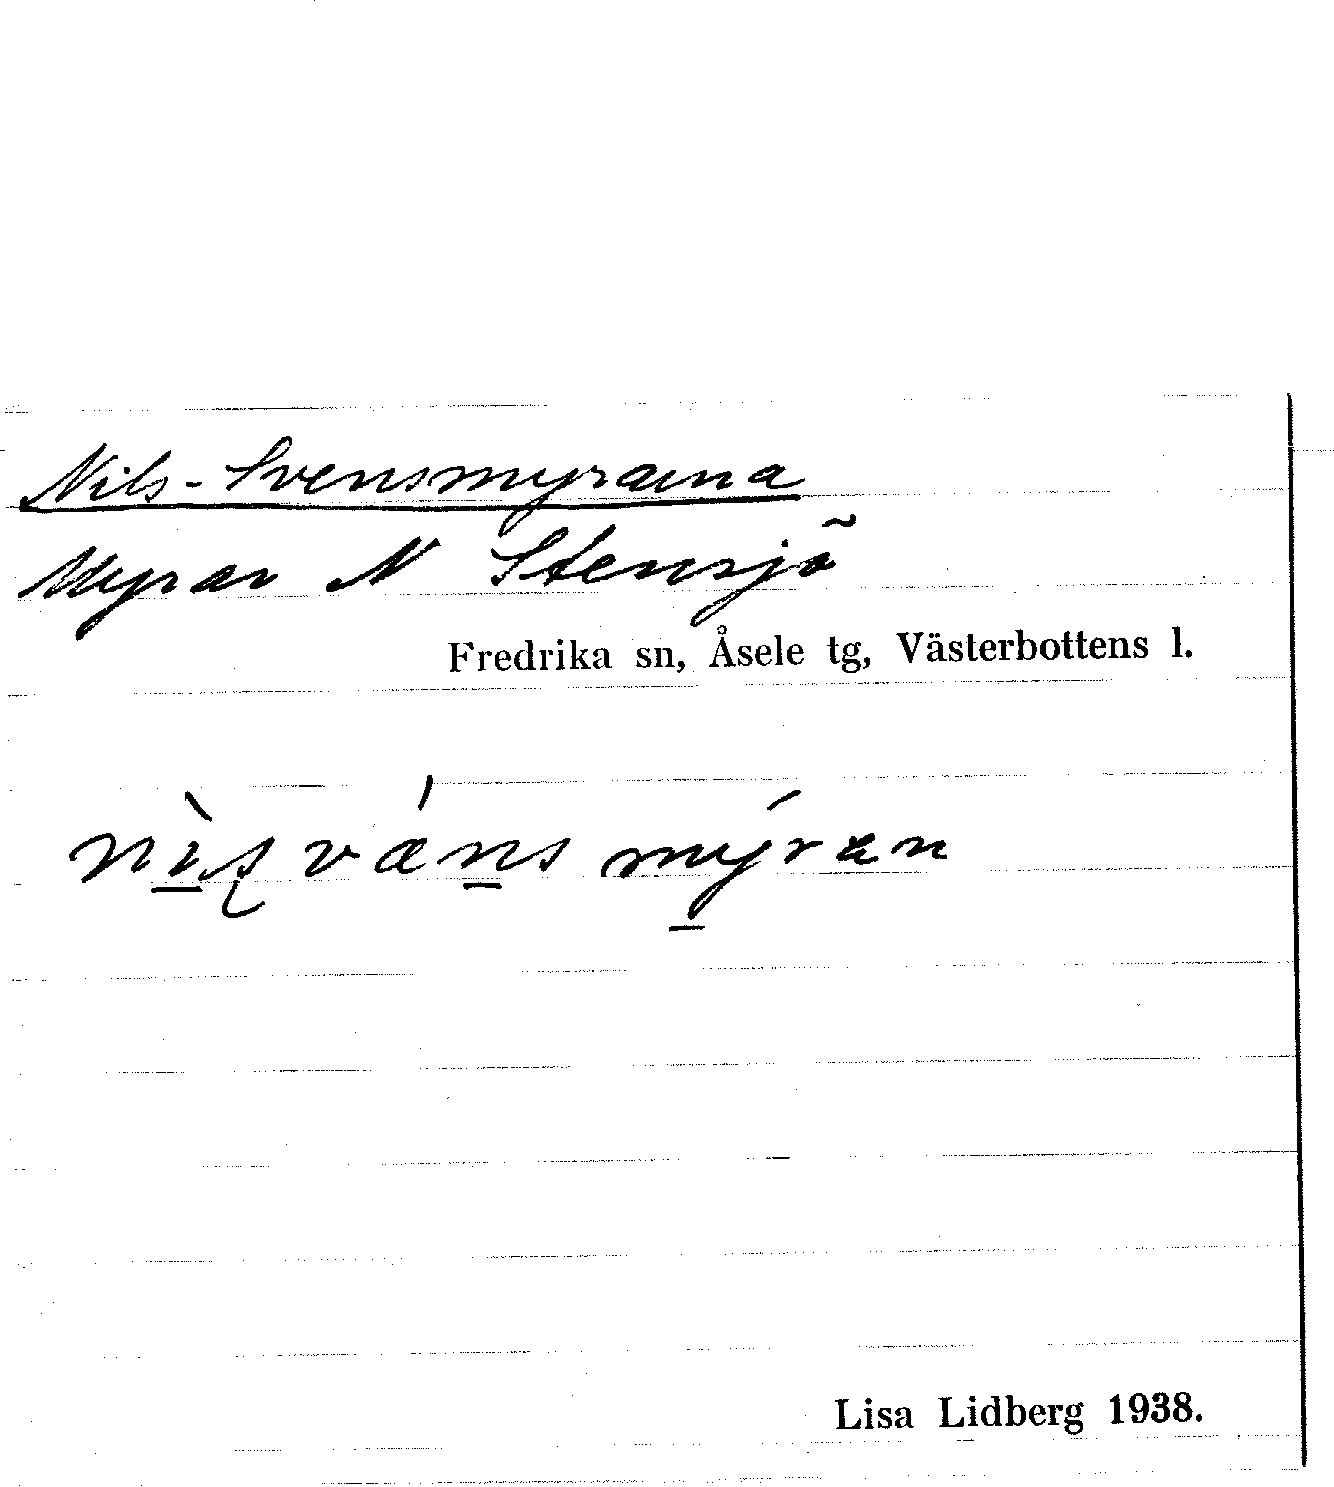 Nils-Svensmyrarna
Myrar N Stensjö
Fredrika sn, Åsele tg, Västerbottens l.
Lisa Lidberg 1938.